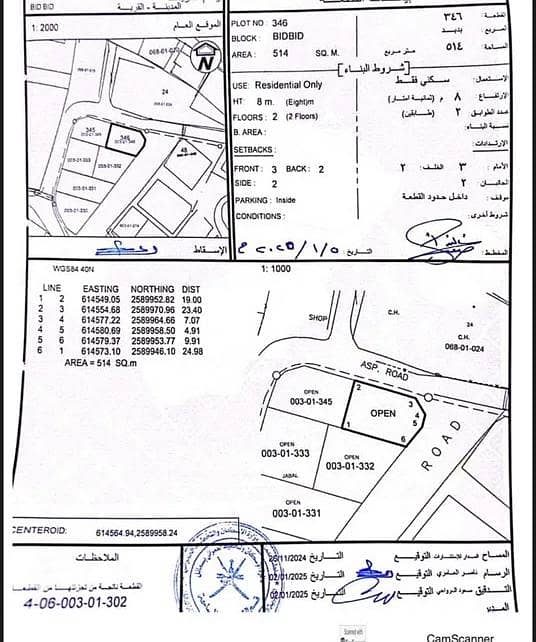 BID BID
المدينة - القرية :
1: 2000
الموقع العام
068-01-020
24
345
346
003-01-333
003-01-332
003-01-331
003-01-330
48
N
PLOT NO : 346
القطعة: ٣٤٦
BLOCK : BIDBID
المربع: بدبد
AREA : 514 SQ. M.
المساحة: ٥١٤ متر مربع
شروط البناء
USE: Residential Only
الاستعمال: سكني فقط
HT: 8 m. (Eight)m
الارتفاع: ٨ م (ثمانية امتار)
FLOORS : 2 (2 Floors)
عدد الطوابق: ٢ (طابقين)
B. AREA :
نسبة البناء:
SETBACKS :
الإرتدادات:
FRONT : 3 BACK : 2
الأمام: ٣ الخلف: ٢
SIDE : 2
الجانبان: ٢
PARKING : Inside
موقف: داخل حدود القطعة
CONDITIONS :
شروط أخرى:
الإسقاط
التاريخ:
المخطط:
WGS84 40N
1: 1000
LINE EASTING NORTHING DIST
1 2 614549.05 2589952.82 19.00
2 3 614554.68 2589970.96 23.40
3 4 614577.22 2589964.66 7.07
4 5 614580.69 2589958.50 4.91
5 6 614579.37 2589953.77 9.91
6 1 614573.10 2589946.10 24.98
AREA = 514 SQ.m
SHOP
C.H.
24
C.H.
068-01-024
ASP. ROAD
OPEN
003-01-345
2
3
OPEN
4
5
1
6
ROAD
OPEN
003-01-333
OPEN
003-01-332
JABAL
OPEN
003-01-331
CENTEROID: 614564.94,2589958.24
الملاحظات
القطعة ناتجة من تجزئتها من القطعة
4-06-003-01-302
المساح التوقيع التاريخ 26/11/2024
الرسام التوقيع التاريخ 02/01/2025
التدقيق التوقيع التاريخ 02/01/2025
المدير
Scanned with
CamScanner